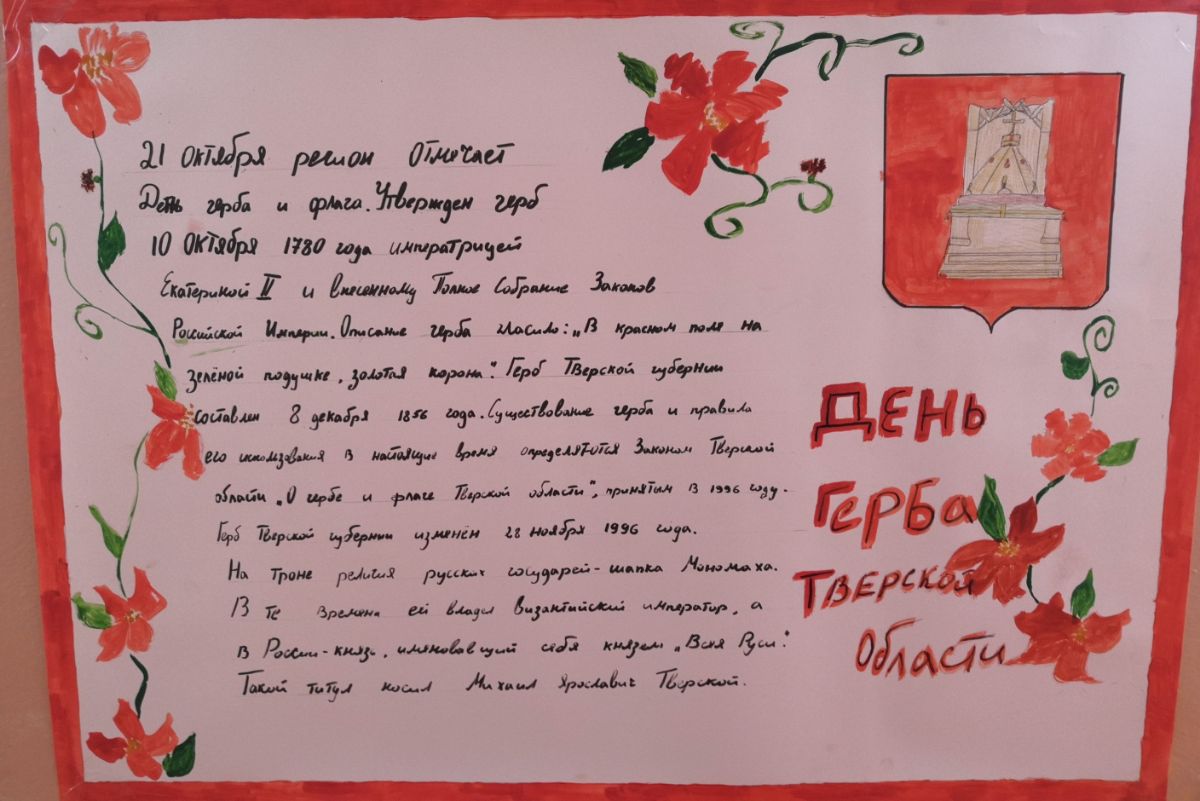 21 октября регион отмечает
День герба и флага. Утвержден герб
10 октября 1780 года императрицей
Екатериной II и внесенному Полное Собрание Законов
Российской Империи. Описание герба гласило: „В красном поле на
зелёной подушке, золотая корона". Герб Тверской губернии
составлен 8 декабря 1856 года. Существование герба и правила
его использования в настоящие время определяются Законом Тверской
области „О гербе и флаге Тверской области", принятым в 1996 году.
Герб Тверской губернии изменён 28 ноября 1996 года.
На троне религия русских государей - шапка Мономаха.
В те времена ей владел Византийский император, а
в России - князь, именовавший себя князем „Всея Руси".
Такой титул носил Михаил Ярославич Тверской.
День
Герба
Тверской
Области